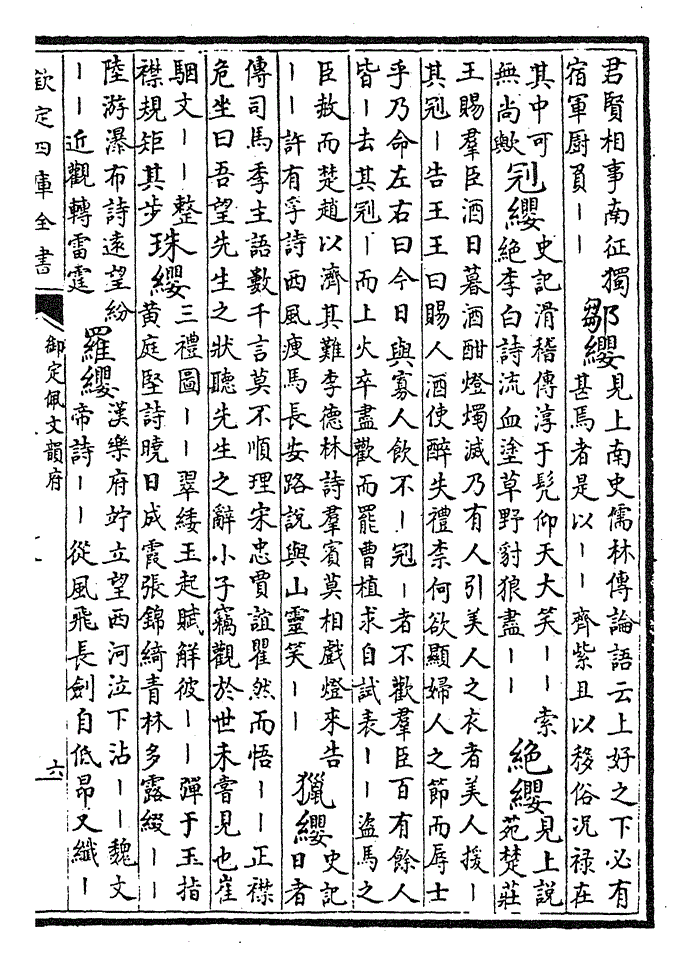 君賢相事南征獨
宿軍厨頁｜｜
鄒纓
見上南史儒林傳論語云上好之下必有
甚焉者是以｜｜齊紫且以移俗况禄在
其中可
無尚歟
冠纓
史記滑稽傳淳于髠仰天大笑｜｜索
絶李白詩流血塗草野豺狼盡｜｜
絶纓
見上說
苑楚莊
王賜羣臣酒日暮酒酣燈燭滅乃有人引美人之衣者美人援｜
其冠｜告王王曰賜人酒使醉失禮柰何欲顯婦人之節而辱士
乎乃命左右曰今日與寡人飲不｜冠｜者不歡羣臣百有餘人
皆｜去其冠｜而上火卒盡歡而罷曹植求自試表｜｜盗馬之
臣赦而楚趙以濟其難李德林詩羣賓莫相戲燈來告
｜｜許有孚詩西風痩馬長安路說與山靈笑｜｜
獵纓
史記
日者
傳司馬季主語數千言莫不順理宋忠賈誼瞿然而悟｜｜正襟
危坐曰吾望先生之狀聽先生之辭小子竊觀於世未嘗見也崔
駰文｜｜整
襟規矩其步
珠纓
三禮圖｜｜翠緌王起賦解彼｜｜彈于玉指
黄庭堅詩曉日成霞張錦綺青林多露綴｜｜
陸游瀑布詩遠望紛
｜｜近觀轉雷霆
羅纓
漢樂府竚立望西河泣下沾｜｜魏文
帝詩｜｜從風飛長劍自低昂又纖｜
欽定四庫全書
御定佩文韻府
六